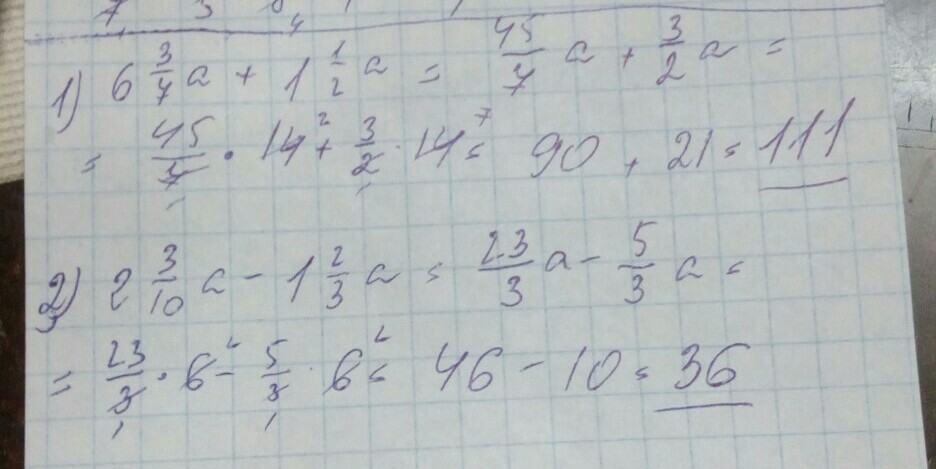 1) 6 3/7 a + 1 1/2 a = 45/7 a + 3/2 a =
= 45/7 · 14 + 3/2 · 14 = 90 + 21 = 111
2) 2 3/10 a - 1 2/3 a = 23/3 a - 5/3 a =
= 23/3 · 6 - 5/3 · 6 = 46 - 10 = 36